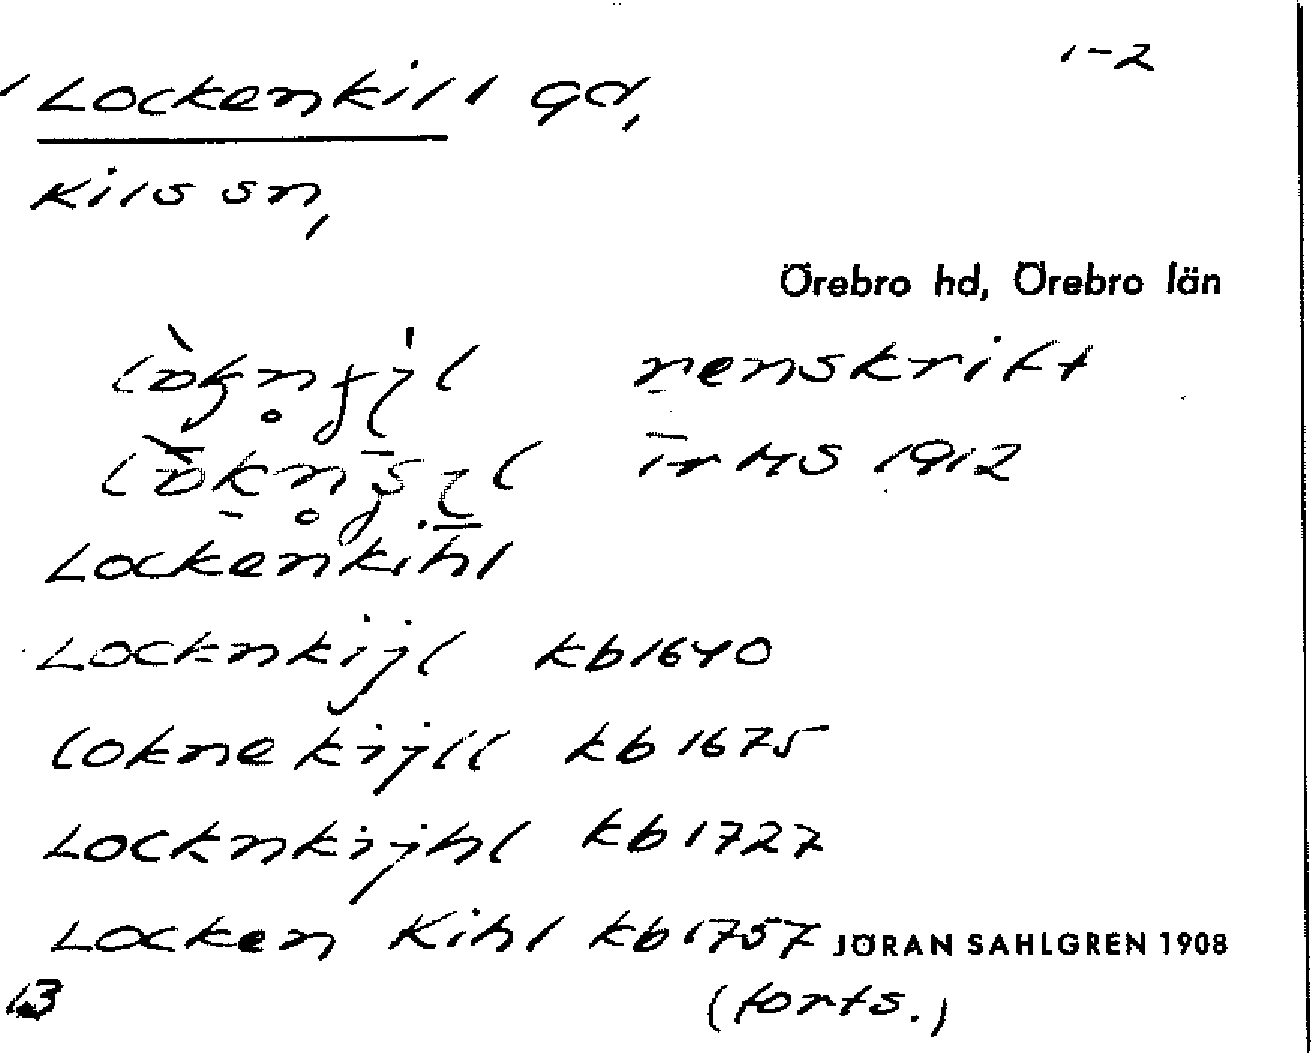 1-2
Lockenkill gd,
Kils sn,
Örebro hd, Örebro län
renskrift
HS 1912
Lockenkihl
Locknkijl kb 1640
loknekijll kb 1675
Locknkijhl kb 1727
Locken Kihl kb 1757 JÖRAN SAHLGREN 1908
(forts.)